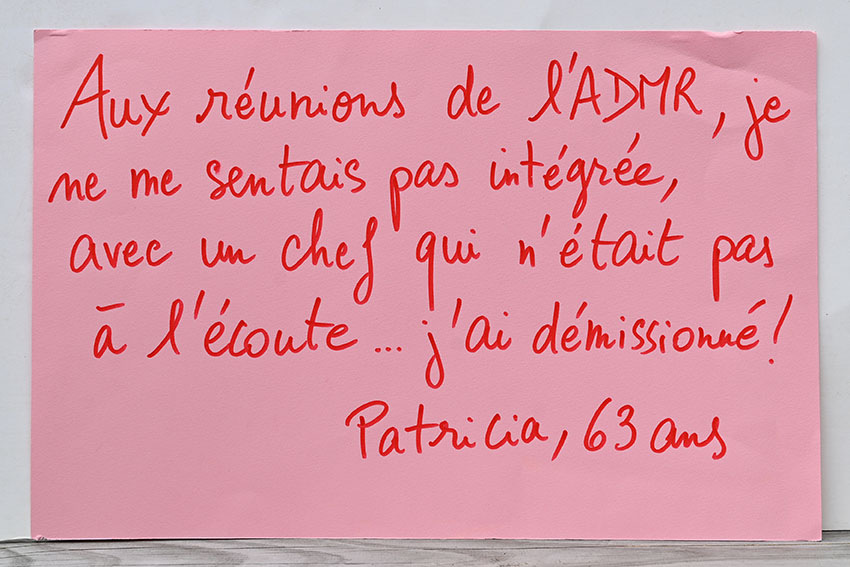 Aux réunions de l'ADMR, je
ne me sentais pas intégrée,
avec un chef qui n'était pas
à l'écoute... j'ai démissionné!
Patricia, 63 ans